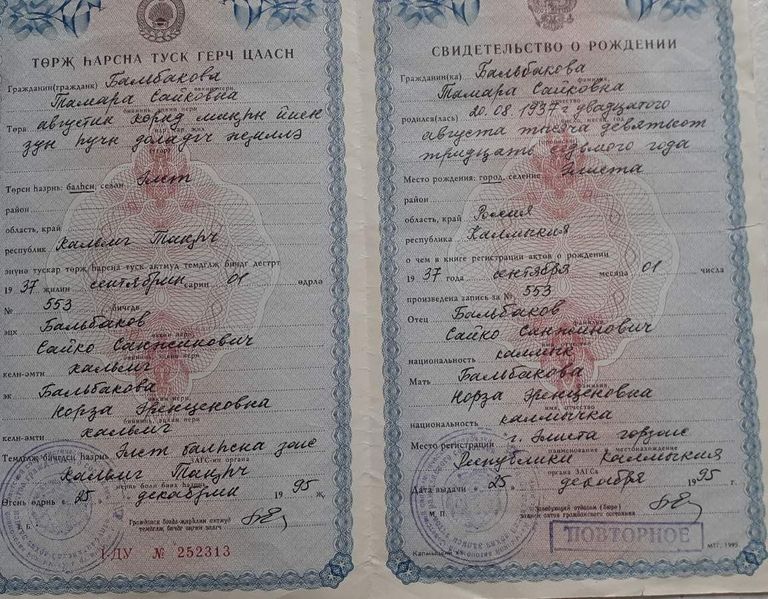 ТӨРҖ ҺАРСНА ТУСК ГЕРЧ ЦААСН
Гражданин(гражданк) Бальбакова
Тамара Сайковна
Төрв августин хөрнд миңһн йисн
зун һучн доладгч җиллә
Төрсн һазрнь: балһсн, селән Элст
район
область, край
республик Хальмг Таңһч
энүнә тускар төрҗ һарсна туск актмуд темдглҗ бичдг дегтрт
19 37 җилин сентябрин сарин 01 өдрлә
№ 553 бичгдв
эцк Бальбаков
Сайко Санжинович
келн-әмтн хальмг
эк Бальбакова
Норза Эренценовна
келн-әмтн хальмг
Темдглҗ бичгдсн һазрнь Элст балһсна загс
ЗАГС-ин органа
Хальмг Таңһч
Өггсн өдрнь « 25 » декабрин 19 95 җ.
I-ДУ № 252313
СВИДЕТЕЛЬСТВО О РОЖДЕНИИ
Гражданин(ка) Бальбакова
фамилия,
Тамара Сайковна
имя, отчество
родился(лась) 20.08 1937 г двадцатого
число, месяц, год
августа тысяча девятьсот
тридцать седьмого года
Место рождения: город, селение Элиста
район
область, край Россия
республика Калмыкия
о чем в книге регистрации актов о рождении
19 37 года сентября месяца 01 числа
произведена запись за № 553
Отец Бальбаков
фамилия
Сайко Санжинович
национальность калмык
Мать Бальбакова
фамилия
Норза Эренценовна
имя, отчество
национальность калмычка
Место регистрации г. Элиста горзагс
наименование и местонахождение
Республики Калмыкия
органа ЗАГСа
Дата выдачи « 25 » декабря 19 95 г.
М. П.
Заведующий отделом (бюро)
записи актов гражданского состояния
ПОВТОРНОЕ
МТГ, 1995.